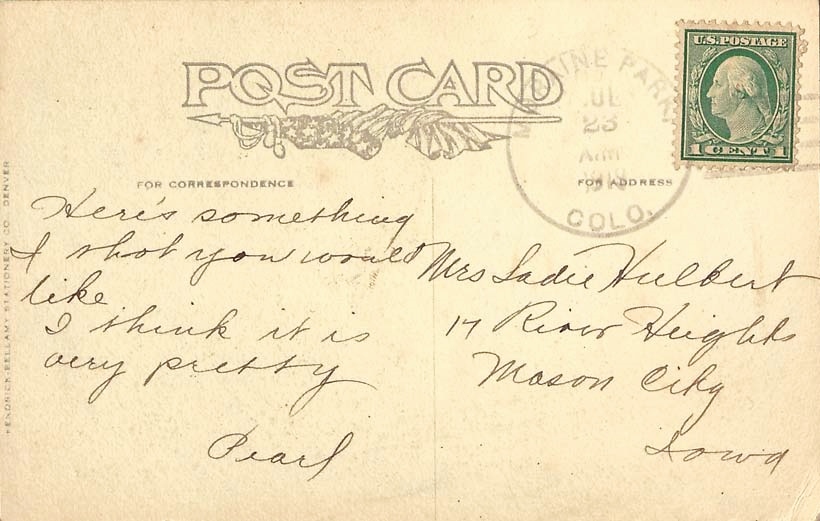 POST CARD
U.S. POSTAGE
1 CENT 1
PARK
JUL
23
COLO.
FOR CORRESPONDENCE
FOR ADDRESS
Here's something
I shot you would
like
I think it is
very pretty
Pearl
Mrs Sadie Hulbert
17 River Heights
Mason City
Iowa
KENDRICK-BELLAMY STATIONERY CO. DENVER